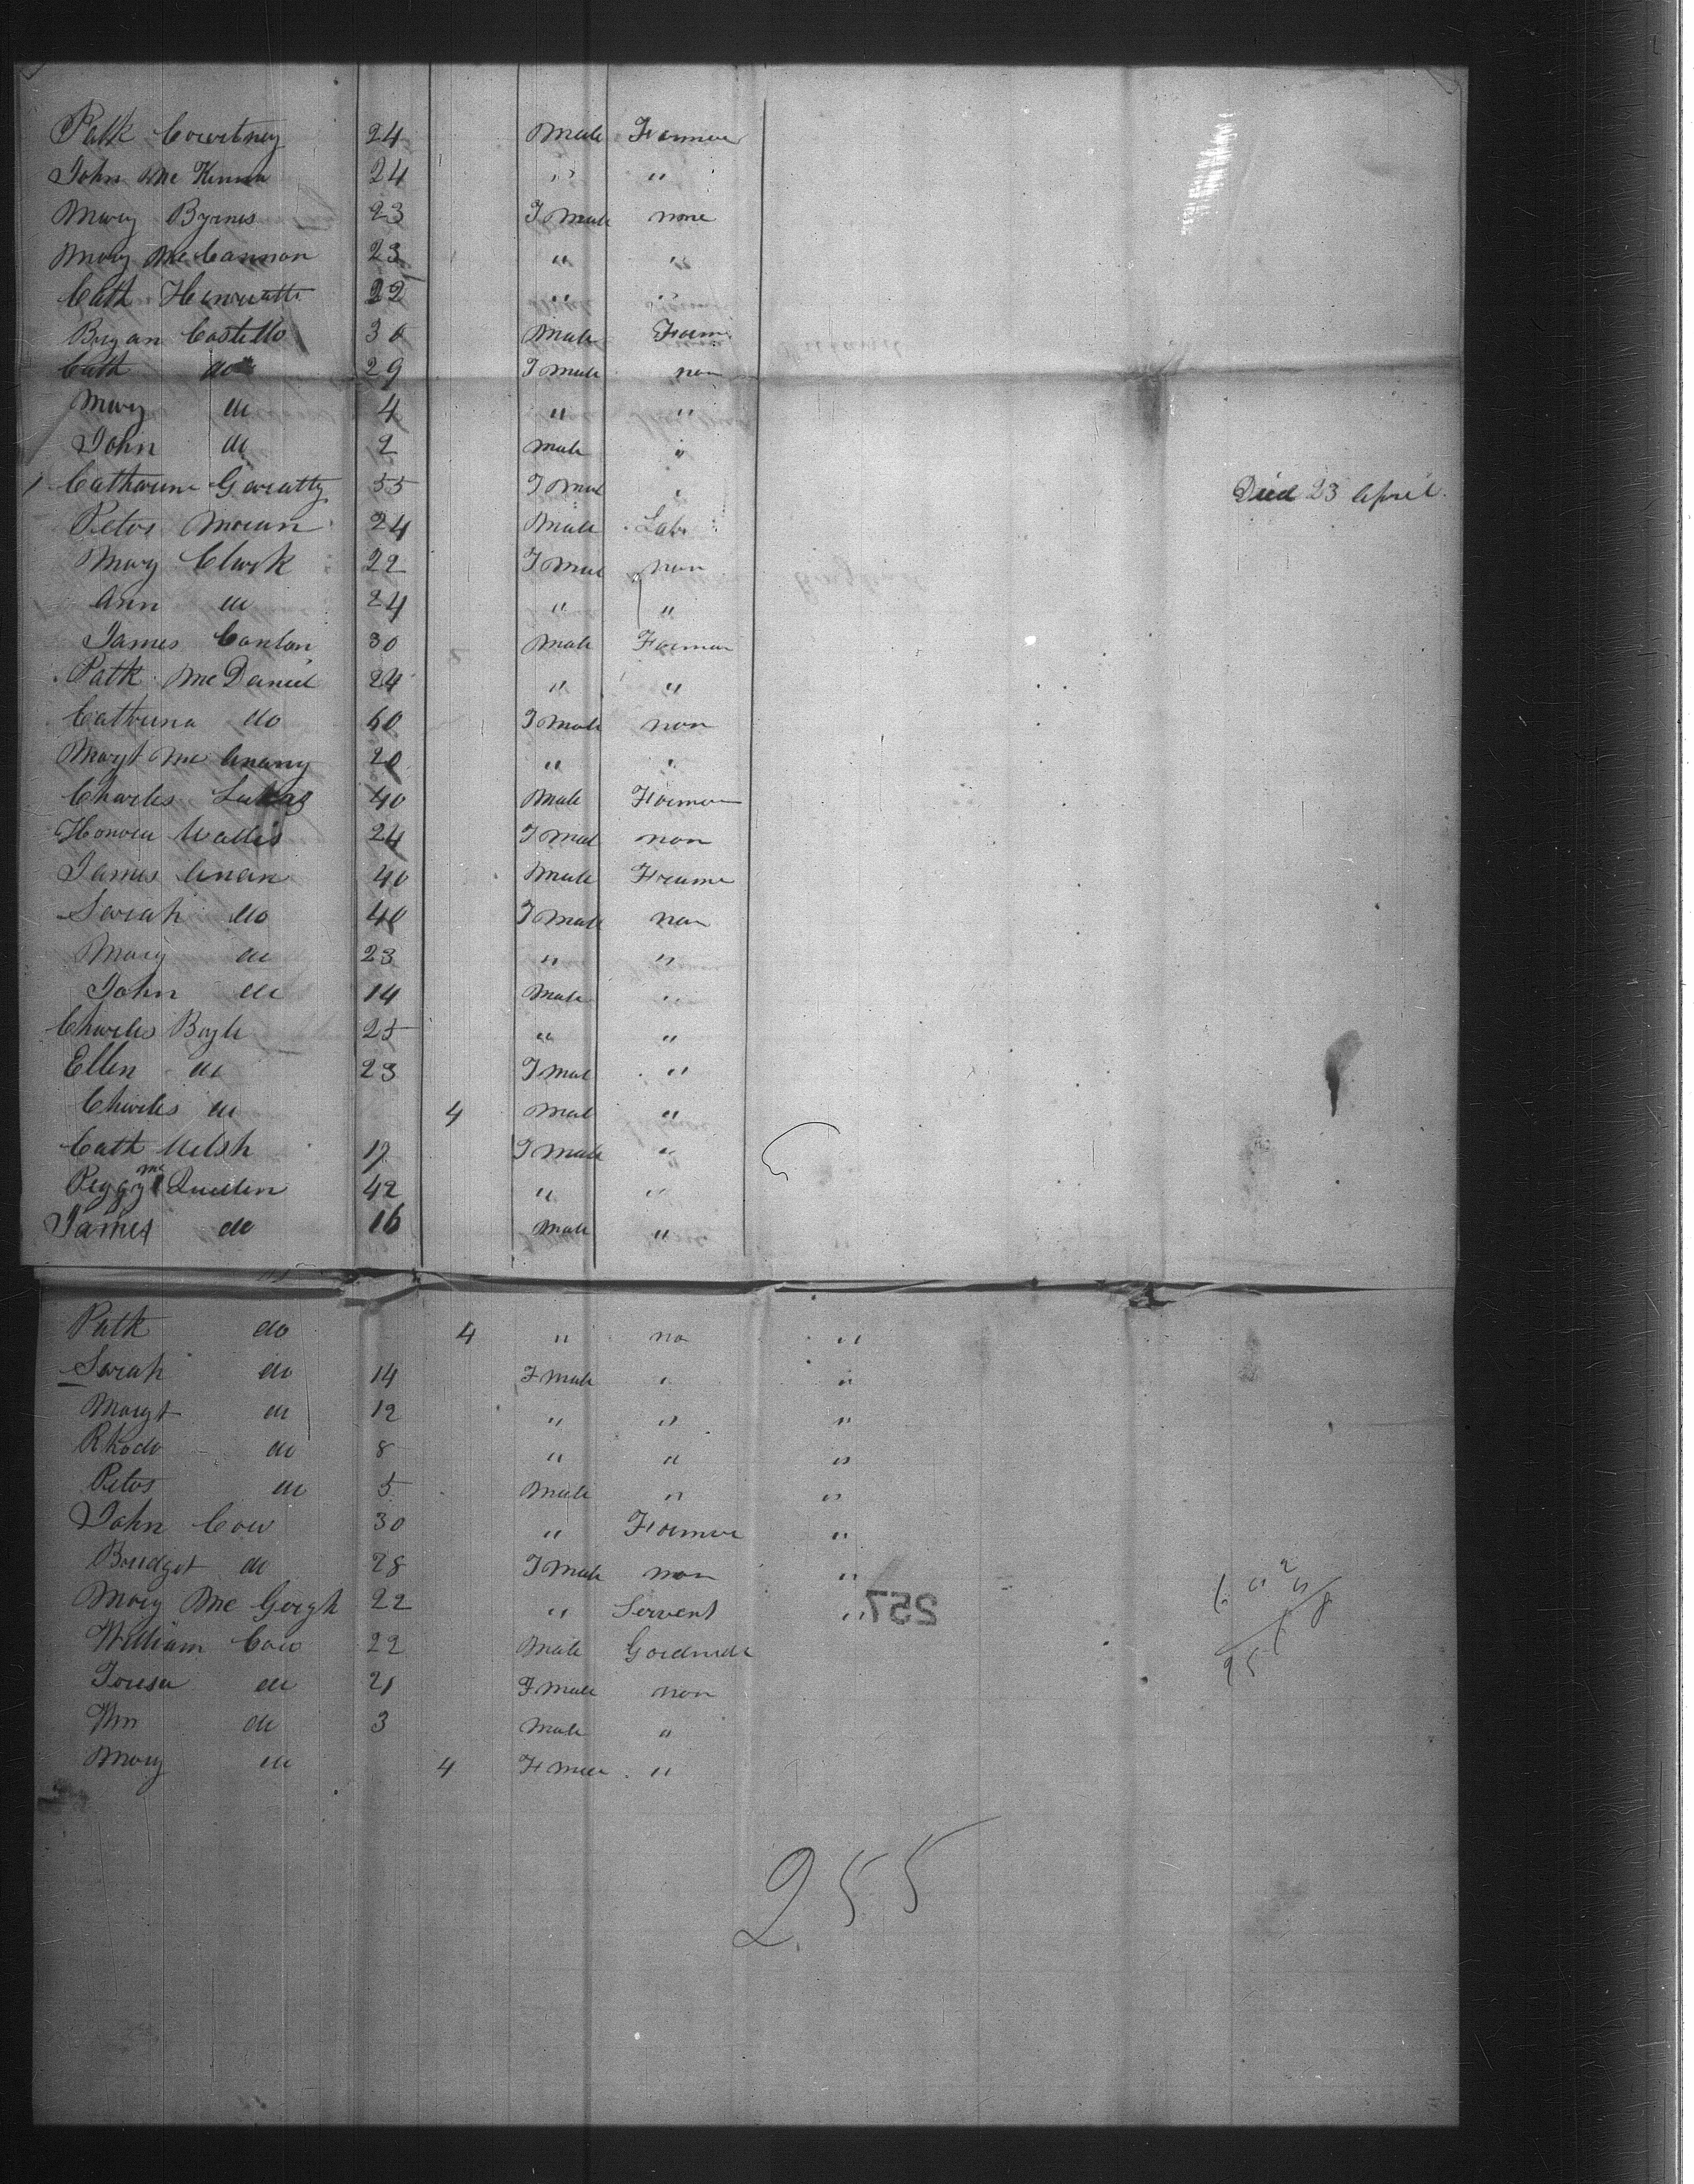 Patk Courtney 24 Male Farmer
John McKenna 24 " "
Mary Byrnes 23 F Male none
Mary McCannon 23 " "
Cath 22 " "
Bryan Costello 30 Male Farm
Cath do 29 F Male non
Mary do 4 " "
John do 2 Male "
1 Catharine Garratty 55 F Mal " Died 23 April
Peter Moran 24 Male Labr
Mary Clark 22 F Mal non
Ann do 24 " "
James Conlon 30 Male Farmer
Patk McDaniel 24 " "
Cathrina do 60 F Male non
Margt McAnany 20 " "
Charles 40 Male Farmer
Honora Wallis 24 F Mal non
James 40 Male Farme
Sarah do 40 F Male non
Mary do 23 " "
John do 14 Male "
Charles Boyle 25 " "
Ellen do 23 F Mal "
Charles do 4 Mal "
Cath Welsh 17 F Male "
Peggy Mc Quillen 42 " "
James do 16 Male "
Patk do 4 " no "
Sarah do 14 F Male " "
Margt do 12 " " "
Rhoda do 8 " " "
Peter do 5 Male " "
John 30 " Farmer "
Bridget do 28 F Male non "
Mary McGorgh 22 " Servent "
257
William 22 Male
Teresa do 21 F Male non
Wm do 3 Male "
Mary do 4 F Male "
255